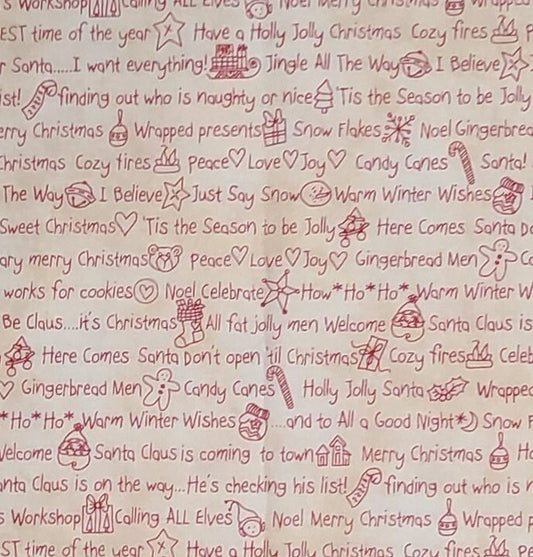 s Workshop Calling ALL Elves Noel Merry Christmas Wrapped
EST time of the year Have a Holly Jolly Christmas Cozy fires P
r Santa.....I want everything! Jingle All The Way I Believe
ist! finding out who is naughty or nice 'Tis the Season to be Jolly
erry Christmas Wrapped presents Snow Flakes Noel Gingerbrea
hristmas Cozy fires Peace♡Love♡Joy♡ Candy Canes Santa!
The Way I Believe Just Say Snow Warm Winter Wishes
Sweet Christmas♡ 'Tis the Season to be Jolly Here Comes Santa Do
ary merry Christmas Peace♡Love♡Joy♡ Gingerbread Men Ca
works for cookies Noel Celebrate How*Ho*Ho* Warm Winter W
Be Claus....it's Christmas All fat jolly men Welcome Santa Claus is
Here Comes Santa Don't open 'til Christmas Cozy fires Celeb
♡ Gingerbread Men Candy Canes Holly Jolly Santa Wrapped
*Ho*Ho* Warm Winter Wishes ....and to All a Good Night* Snow F
Welcome Santa Claus is coming to town Merry Christmas Ho
anta Claus is on the way...He's checking his list! finding out who is n
s Workshop Calling ALL Elves Noel Merry Christmas Wrapped p
ST time of the year Have a Holly Jolly Christmas Cozy fires Pe